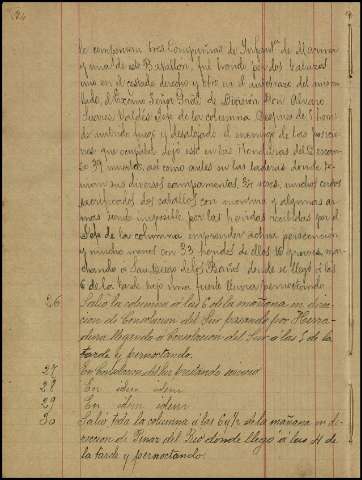 le componian tres Compañias de Infantª de Marina
y una de este Batallon, fué herido por dos balazos
uno en el costado derecho y otro en el antebrazo del mismo
lado, el Excmo Señor Gral de Division Don Alvaro
Suarez Valdes Jefe de la columna. Despues de 1 hora
de nutrido fuego y desalojado el enemigo de las posicio
nes que ocupaba dejó este en las Honduras del Descan
so 39 muertos, así como aules en las laderas donde te
nian sus diversos campamentos, 30 reses, muchos cerdos
sacrificados dos caballos con montura y algunas ar
mas siendo imposible por las heridas recibidas por el
Jefe de la columna emprender activa persecucion
y mucho menos con 33 heridos de ellos 10 graves, mar
chando a San Diego de los Baños donde se llegó á las
6 de la tarde bajo una fuerte lluvia pernoctando.
26 Salió la columna a las 6 de la mañana en direc
cion de Consolacion del Sur pasando por Herra
dura llegando a Consolacion del Sur á las 5 de la
tarde y pernoctando.
27 En Consolacion del Sur prestando servicio
28 En idem idem
29 En idem idem
30 Salió toda la columna á las 6 y ½ de la mañana en di
reccion de Pinar del Rio donde llegó á las 4 de
la tarde y pernoctando.